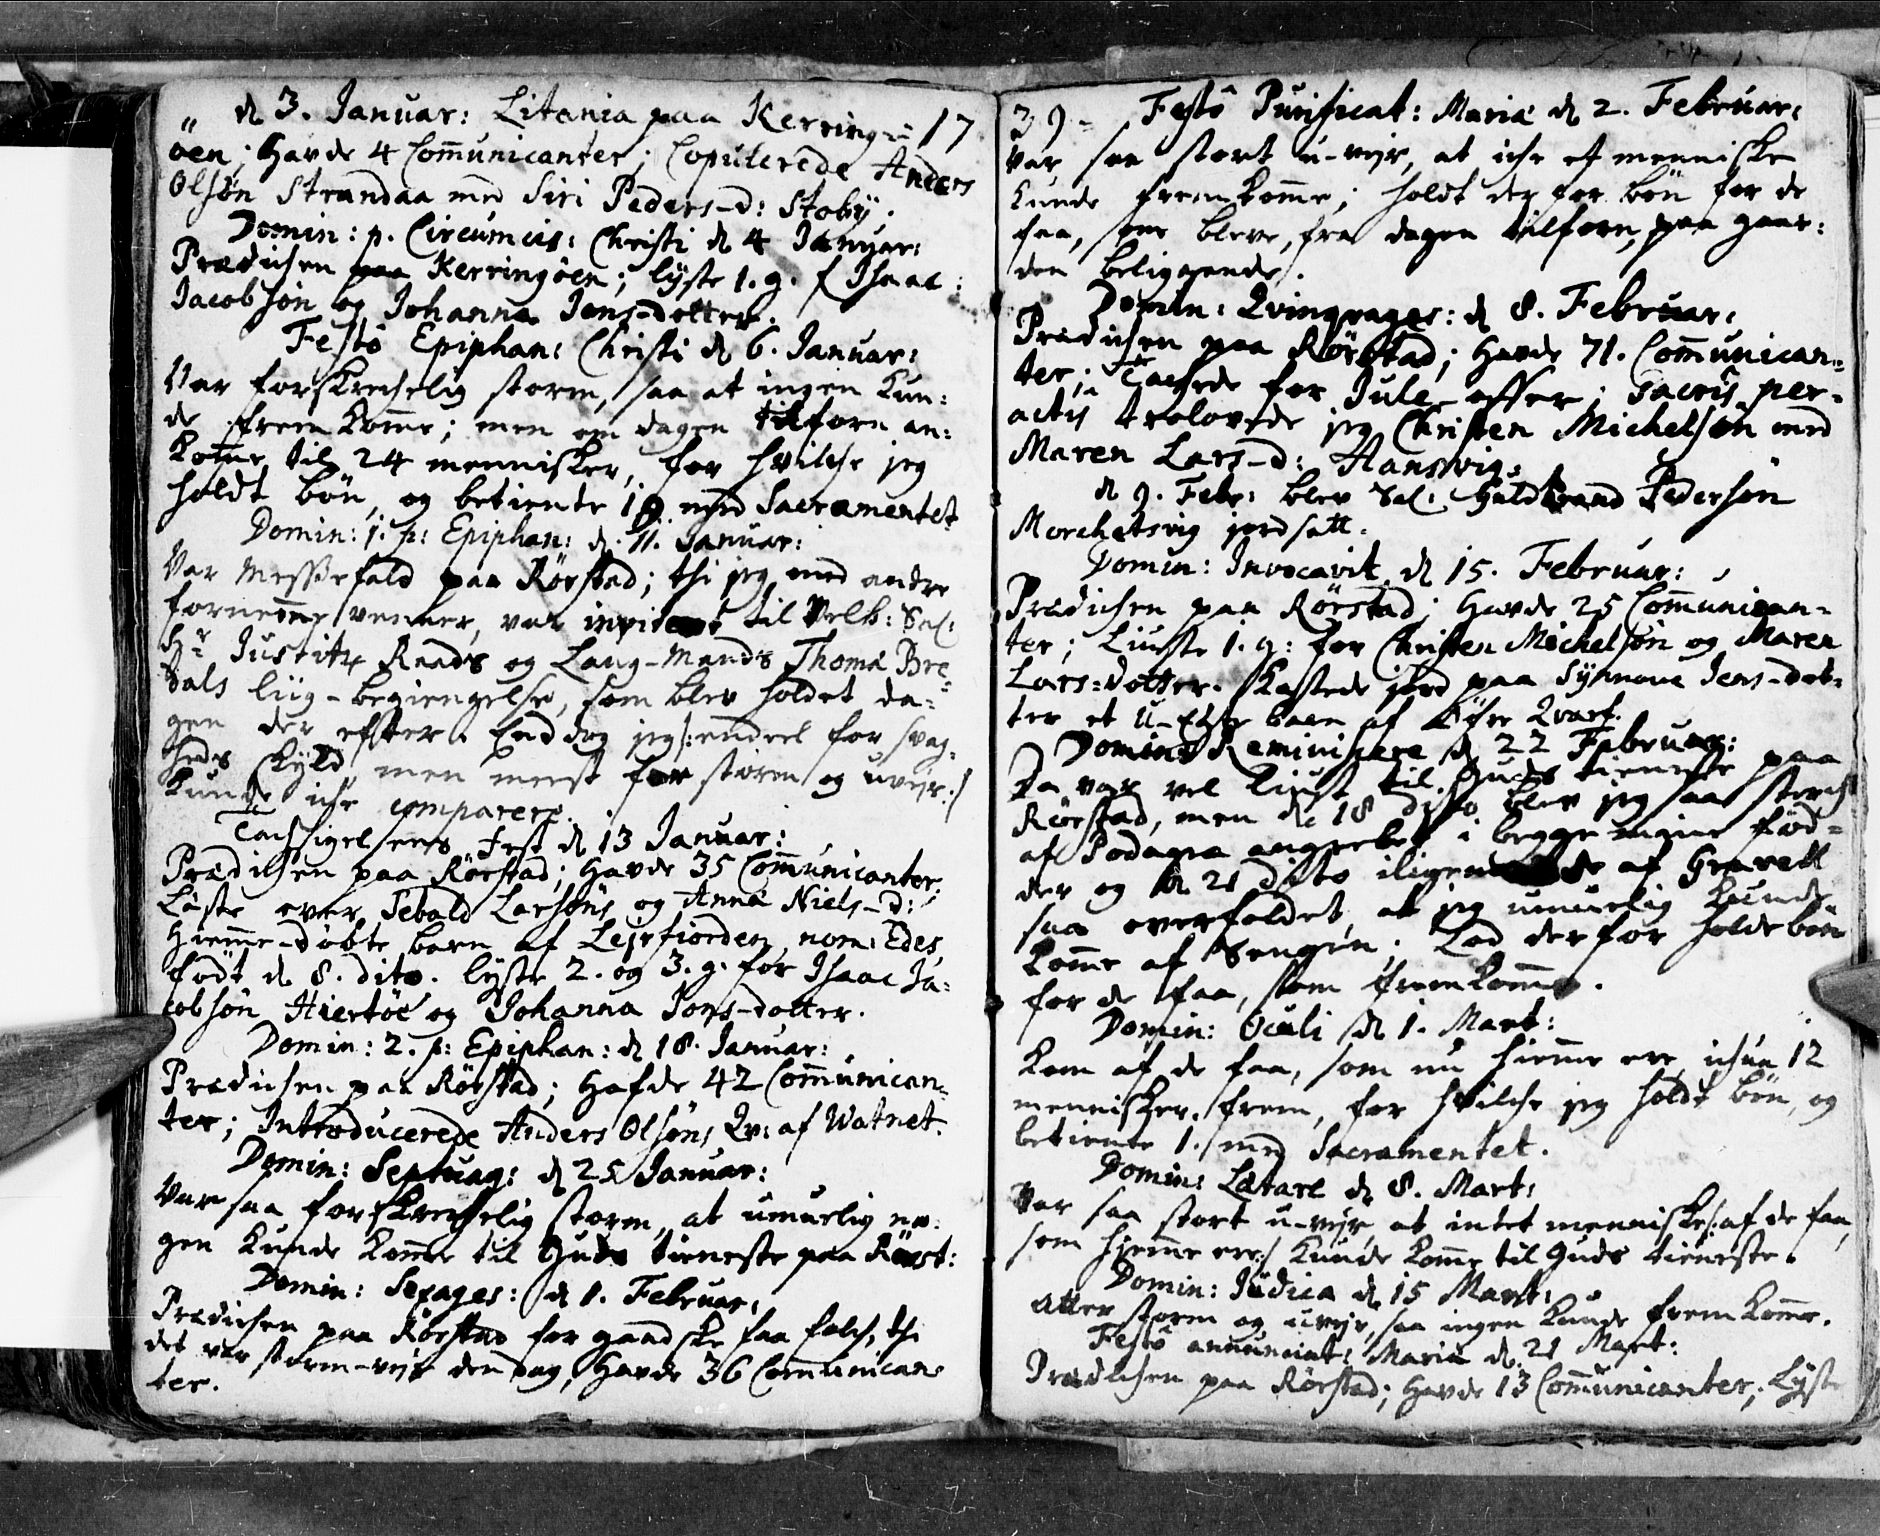 d. 3. Januar: Litania paa Kerring= 17
öen; Havde 4 Com̅unicanter; Copulerede Anders
Olsøn Strandaa med Siri Peders-d: Stoby.
Domin: p. Circumcis: Christi d. 4 Januar:
Prædichen paa Kerringöen; lyste 1. g. f Isaac
Jacobsøn og Johanna Jons-dotter.
Festô Epiphan: Christi d. 6. Januar:
Var forskrechelig storm, saa at ingen kun=
de fremkom̅e; men om dagen tilforn an=
kom̅e til 24 mennisker, for hvilche jeg
holdt bön, og betiente 19 med Sacramentet
Domin: 1. p: Epiphan: d. 11. Januar:
Var Messefald paa Rörstad; thi jeg med andre
fornem̅e venner, var inviteret til Velb: Sal:
Hr Justitz Raads og Laug-Mands Thomæ Bre=
dals liig-begiengelse, som blev holdet da=
gen der efter. End dog jeg /: endeel for svag=
heds skyld, men meest for storm og uvejr :/
kunde iche comparere.
Tachsigelsens Fest d. 13 Januar:
Prædichen paa Rörstad; Havde 35 Com̅unicanter;
Læste over Sebald Larsöns og Anna Niels-D:
Hiem̅e-döbte barn af Lejrfiorden, nom: Edes,
födt d. 8. dito. lyste 2. og 3. g. for Isaac Ja=
cobsön Hiertöe og Johanna Jons-dotter.
Domin: 2. p: Epiphan: d. 18. Januar:
Prædichen paa Rörstad; Hafde 42 Com̅unican=
ter; Introducerede Anders Olsöns Qv: af Watnet.
Domin: Septuag: d. 25 Januar:
Var saa forskrechelig storm, at umuelig no=
gen kunde kom̅e til Guds tieneste paa Rörst:
Domin: Sexages: d. 1. Februar:
Prædichen paa Rörstad for gandske faa folch, thi
det var storm-vejr den dag, Havde 36 Com̅unican=
ter.
39- Festô Purificat: Mariæ d. 2. Februar:
Var saa stort u-vejr, at iche et menniske
kunde fremkom̅e; holdt derfor bön for de
faa, som bleve, fra dagen tilforn, paa gaar=
den beliggende.
Domin: Qvinqvages: d. 8. Februar:
Prædichen paa Rörstad; Havde 71. Com̅unican=
ter; Tachede for Jule-offer; Sacris per=
actis trolovede jeg Christen Michelsön med
Maren Lars-d: Hansvig.
d. 9. Febr: blev Sal: Huldbrand Pedersön
Morchetsvig jordsatt.
Domin: Invocavit d. 15. Februar:
Prædichen paa Rörstad; Havde 25 Com̅unican=
ter; Liuste 1. g: for Christen Michelsön og Maren
Lars=dotter. Kastede jord paa Synnove Jens-dot=
ter et U-Egte barn af Qvarf.
Domin: Reminiscere d. 22 Februar:
Da var vel liust til Guds tieneste paa
Rörstad, men d. 18 dito blev jeg saa sterch
af Podagra angrebet i begge mine föd=
der og d. 21 dito af Gravell
saa overfaldet, at jeg umuelig kunde
kom̅e af Sengen; Lod derfor holde bön
for de faa, som fremkom̅e.
Domin: Oculi d. 1. Mart:
Kom af de faa, som nu hiem̅e ere, ichun 12
mennisker frem, for hvilche jeg holdt bön, og
betiente 1. med Sacramentet.
Domin: Lætare d. 8. Mart:
Var saa stort u-vejr, at intet menniske /: af de faa,
som hjem̅e ere :/ kunde kom̅e til Guds tieneste.
Domin: Judica d. 15 Mart:
Atter storm og uvejr, saa ingen kunde fremkom̅e.
Festô annunciat: Mariæ d. 21 Mart:
Prædichen paa Rörstad; Havde 13 Com̅unicanter; Lyste